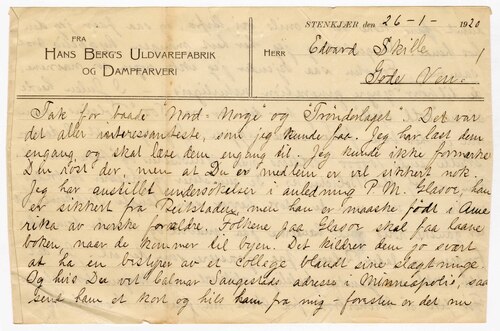 FRA
HANS BERG'S ULDVAREFABRIK
OG DAMPFARVERI
STENKJÆR den 26-1- 1920
HERR Edvard Skille
Gode Ven:
Tak for baade "Nord-Norge" og "Trønderlaget". Det var
det aller interessanteste, som jeg kunde faa. Jeg har læst dem
engang og skal læse dem engang til. Jeg kunde ikke formerke
Din röst der, men at Du er medlem er vel sikkert nok.
Jeg har anstillet undersøkelser i anledning P. M. Glasoe, han
er sikkert fra men han er maaske født i Ame
rika av norske forældre. Folkene paa Glasor skal faa laane
boken, naar de kommer til byen. Det kildrer dem jo svært
at ha en bestyrer av et College blandt sine slægtninge.
Og hvis Du vet Calmar adresse i Minneapolis, saa
send ham et kort og hils ham fra mig - foresten er det nu